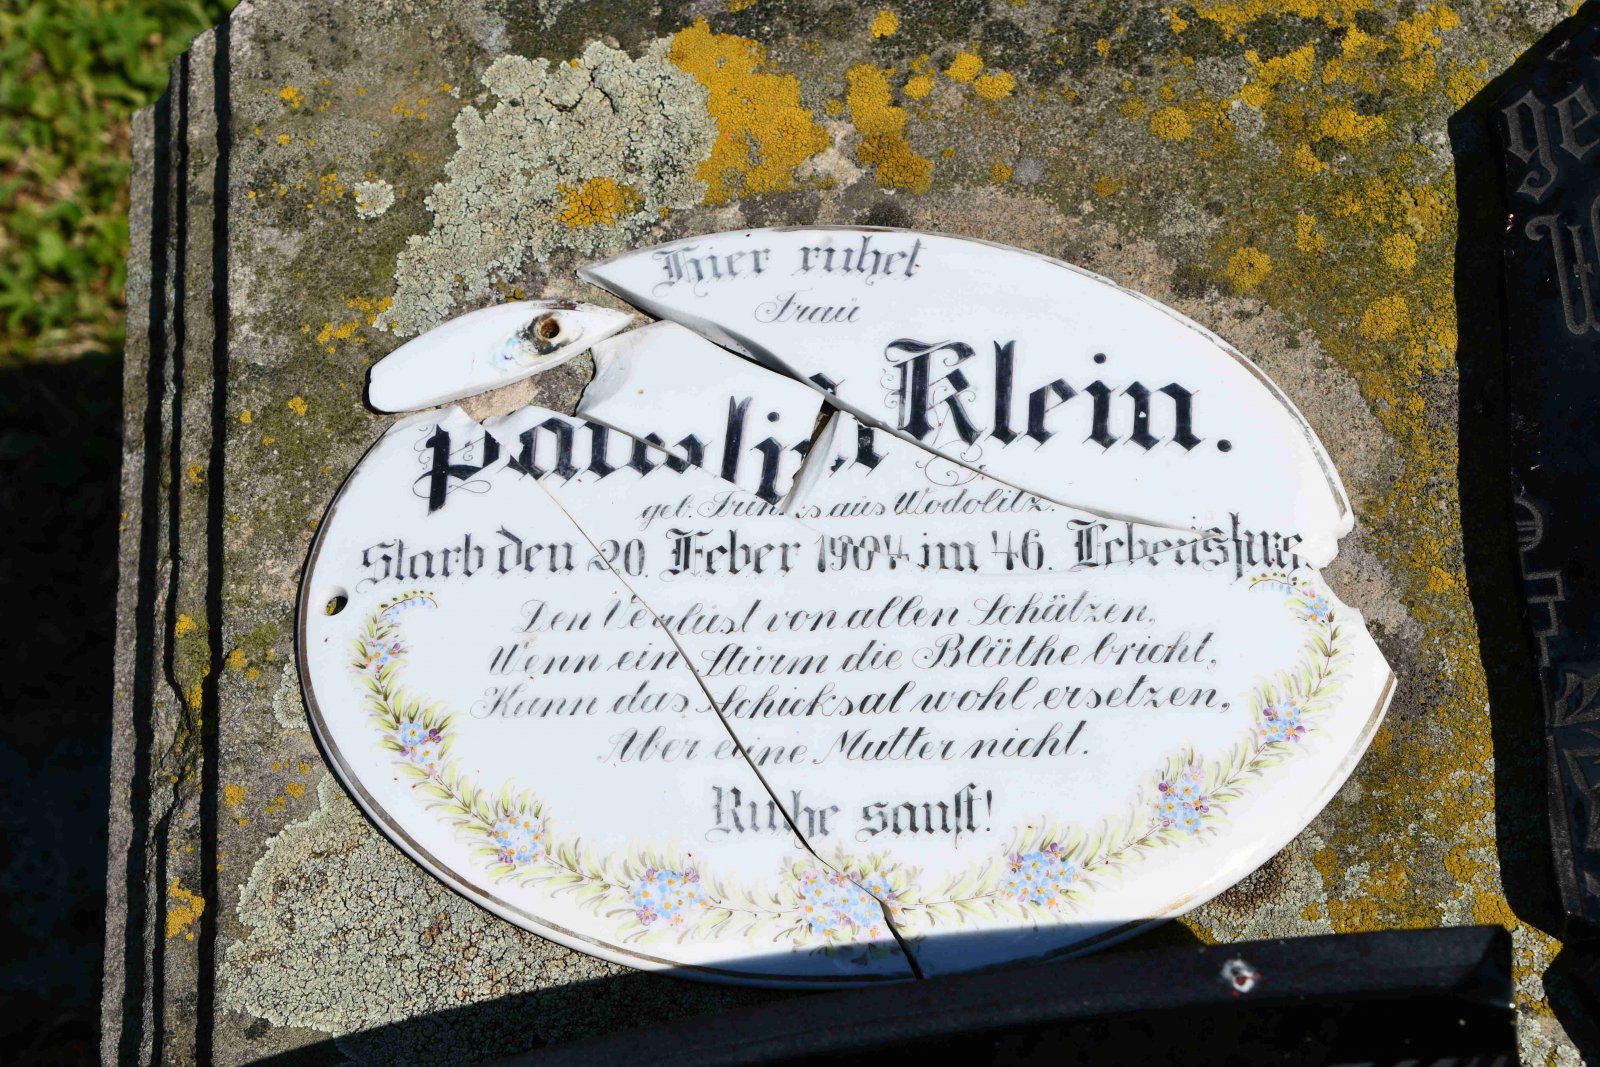 Hier ruhet
Frau
Pauline Klein.
geb. aus Wodolitz.
Starb den 20. Feber 1904 im 46.
Den Verlust von allen Schätzen,
Wenn ein Sturm die Blüthe bricht,
Kann das Schicksal wohl ersetzen,
Aber eine Mutter nicht.
Ruhe sanft!
ge